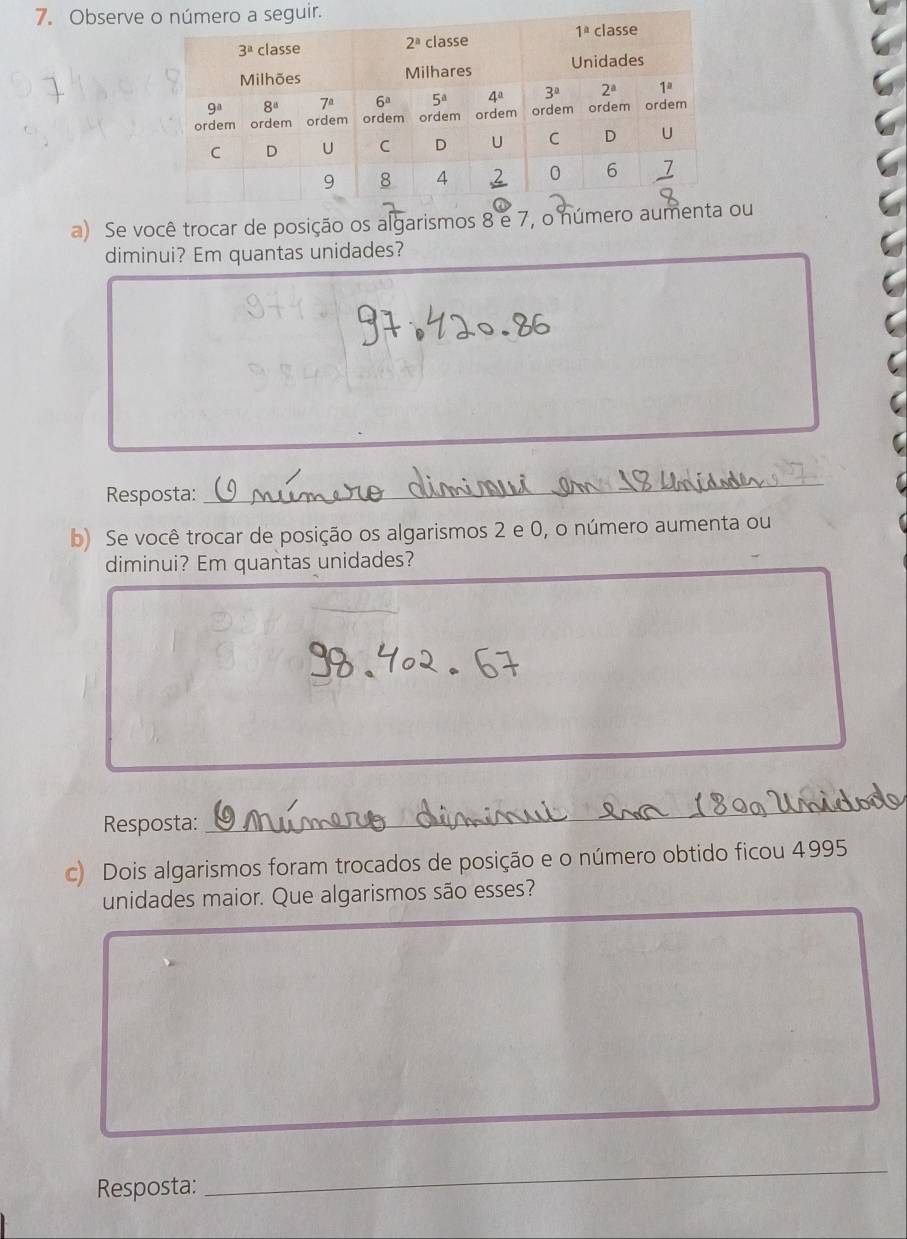 7. Observe o número a seguir.
3ª classe 2ª classe 1ª classe
Milhões Milhares Unidades
9ª ordem 8ª ordem 7ª ordem 6ª ordem 5ª ordem 4ª ordem 3ª ordem 2ª ordem 1ª ordem
C D U C D U C D U
9 8 4 2 0 6 7
7 2 8
a) Se você trocar de posição os algarismos 8 e 7, o número aumenta ou
diminui? Em quantas unidades?
97.420.86
Resposta: O número diminui em 18 Unidades
b) Se você trocar de posição os algarismos 2 e 0, o número aumenta ou
diminui? Em quantas unidades?
98.402.67
Resposta: O número diminui em 1800 Unidade
c) Dois algarismos foram trocados de posição e o número obtido ficou 4 995
unidades maior. Que algarismos são esses?
Resposta: